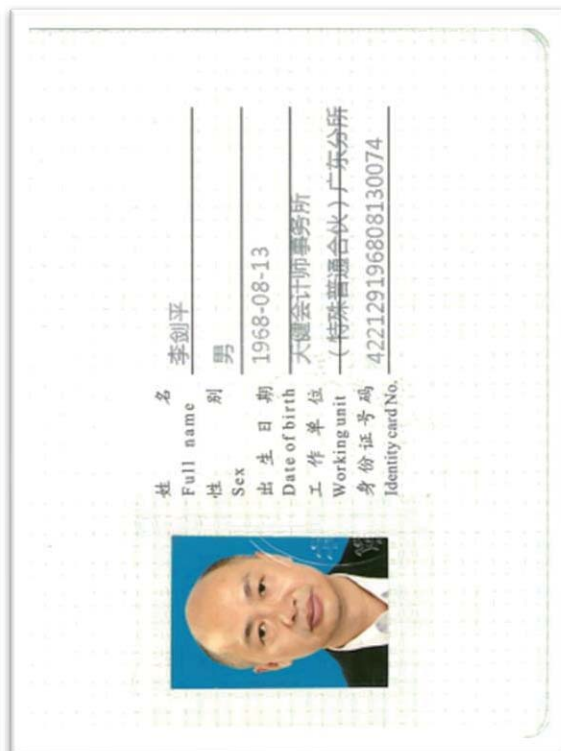 姓名 李剑平
Full name
性别 男
Sex
出生日期 1968-08-13
Date of birth
工作单位 天健会计师事务所
Working unit (特殊普通合伙)广东分所
身份证号码 422129196808130074
Identity card No.